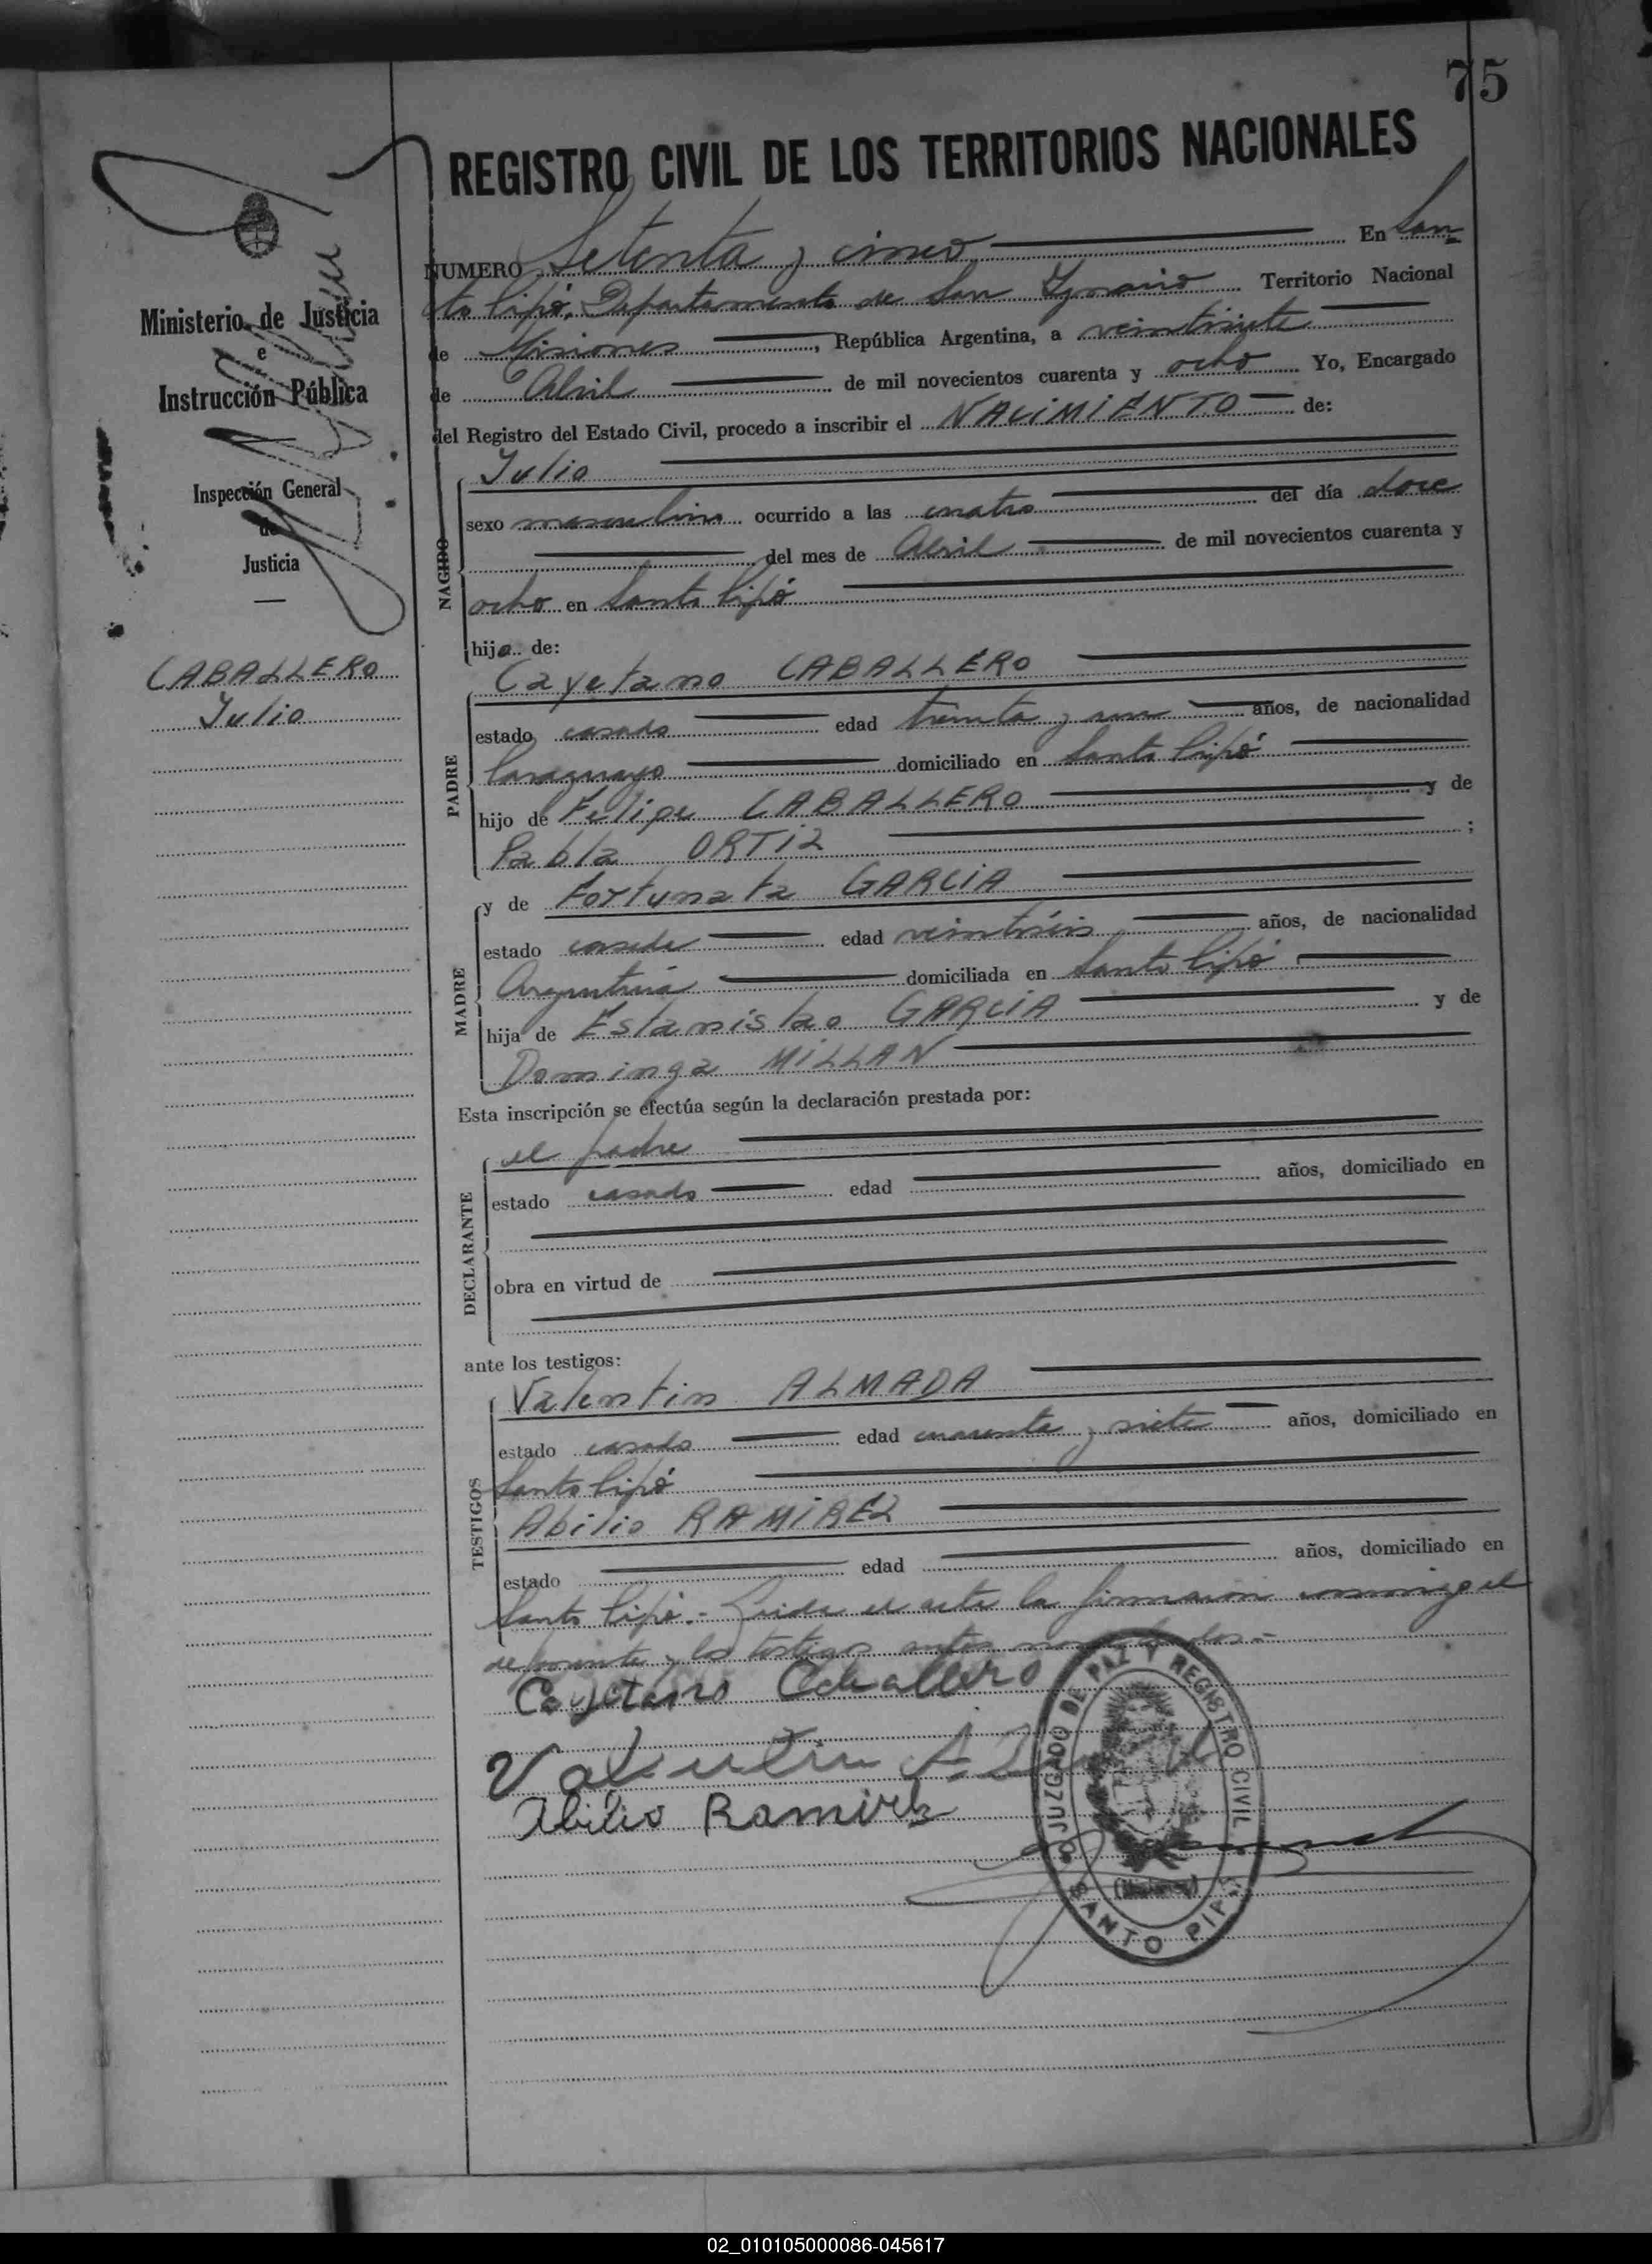 75
REGISTRO CIVIL DE LOS TERRITORIOS NACIONALES
NUMERO Setenta y cinco En San
to Pipó, Departamento de San Ygnacio Territorio Nacional
de Misiones, República Argentina, a veintisiete
de Abril de mil novecientos cuarenta y ocho Yo, Encargado
del Registro del Estado Civil, procedo a inscribir el NACIMIENTO de:
Ministerio de Justicia
e
Instrucción Pública
Inspección General
de
Justicia
CABALLERO
Julio
NACIDO
Julio
sexo masculino ocurrido a las cuatro del día doce
del mes de Abril de mil novecientos cuarenta y
ocho en Santo Pipó
hijo de:
PADRE
Cayetano CABALLERO
estado casado edad treinta y un años, de nacionalidad
Paraguayo domiciliado en Santo Pipó
hijo de Felipe CABALLERO y de
Pabla ORTIZ ;
MADRE
y de Fortunata GARCIA
estado casada edad veintiséis años, de nacionalidad
Argentina domiciliada en Santo Pipó
hija de Estanislao GARCIA y de
Dominga MILLAN
Esta inscripción se efectúa según la declaración prestada por:
DECLARANTE
el padre
estado casado edad años, domiciliado en
obra en virtud de
ante los testigos:
TESTIGOS
Valentin ALMADA
estado casado edad cuarenta y siete años, domiciliado en
Santo Pipó
Abilio RAMIREZ
estado edad años, domiciliado en
Santo Pipó.- Leida el acta la firmaron conmigo el
deponente y los testigos antes nombrados.-
Cayetano Caballero
Valentin
Abilio Ramirez
JUZGADO DE PAZ Y REGISTRO CIVIL
(Misiones)
SANTO PIPÓ
02_010105000086-045617